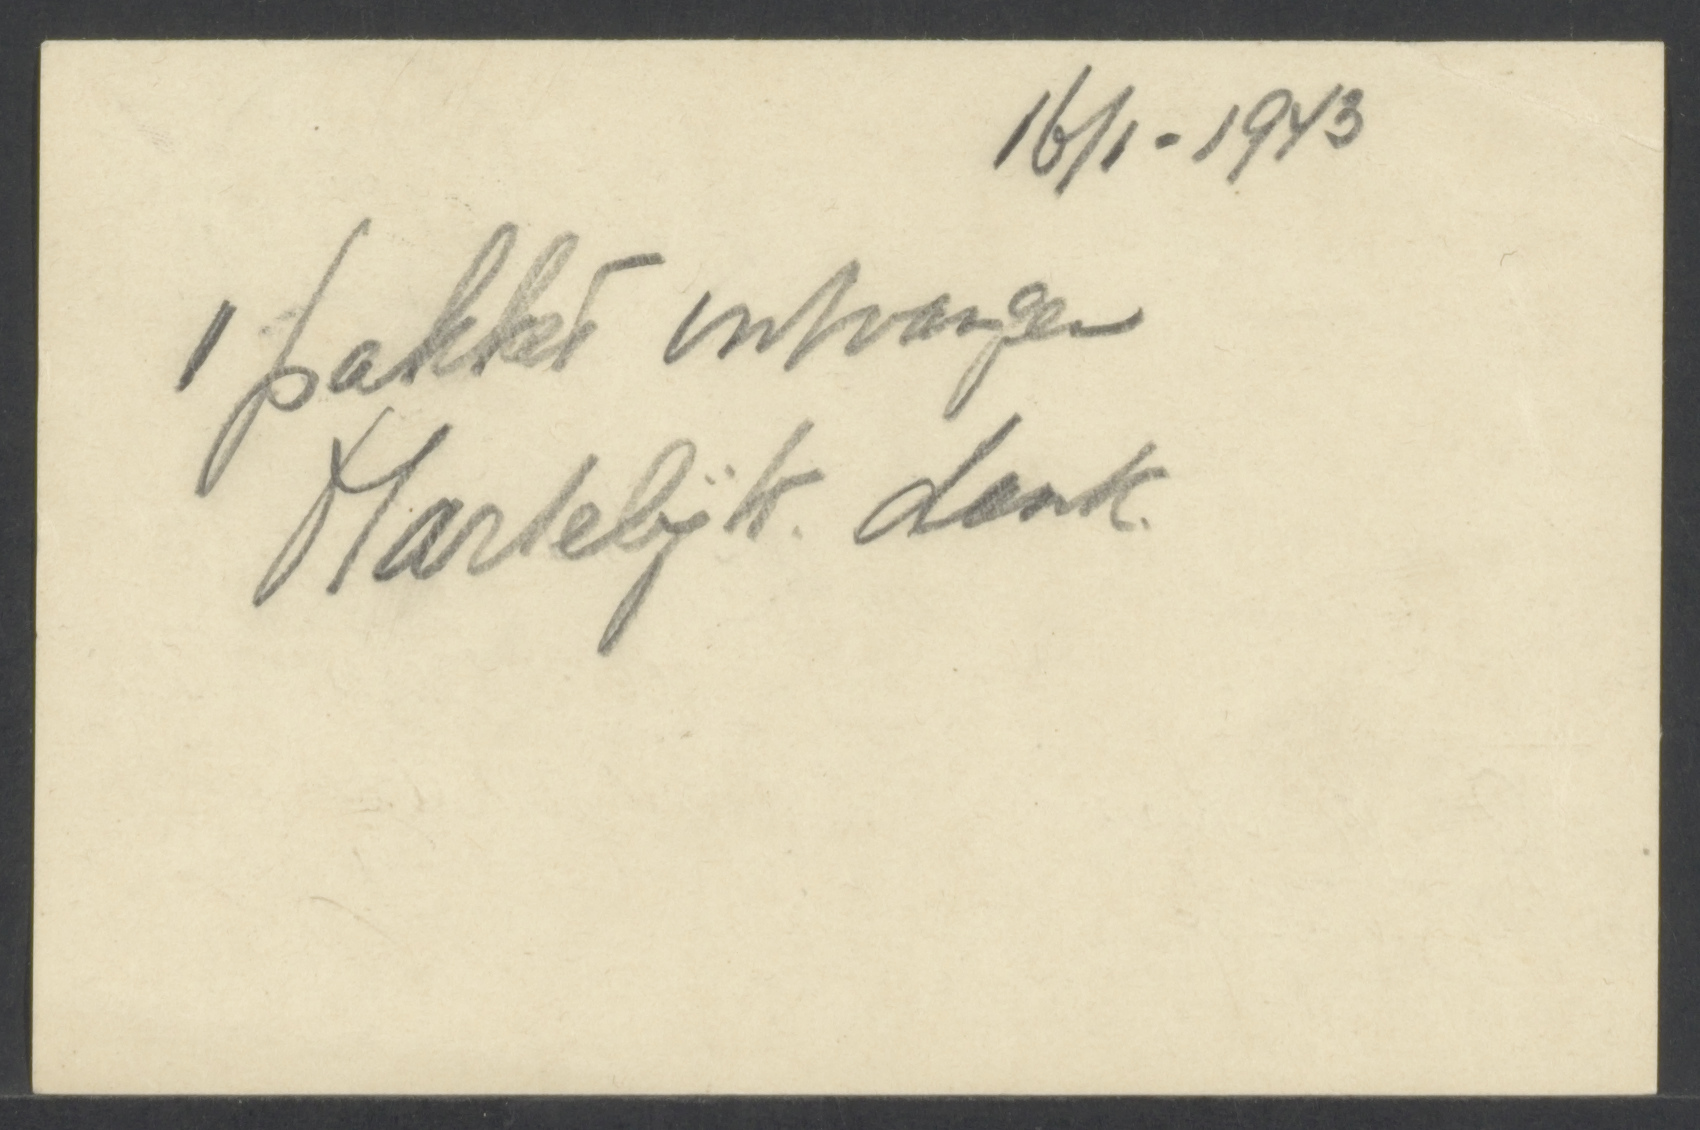 16/1-1943
1 pakket ontvangen
Hartelijk dank.